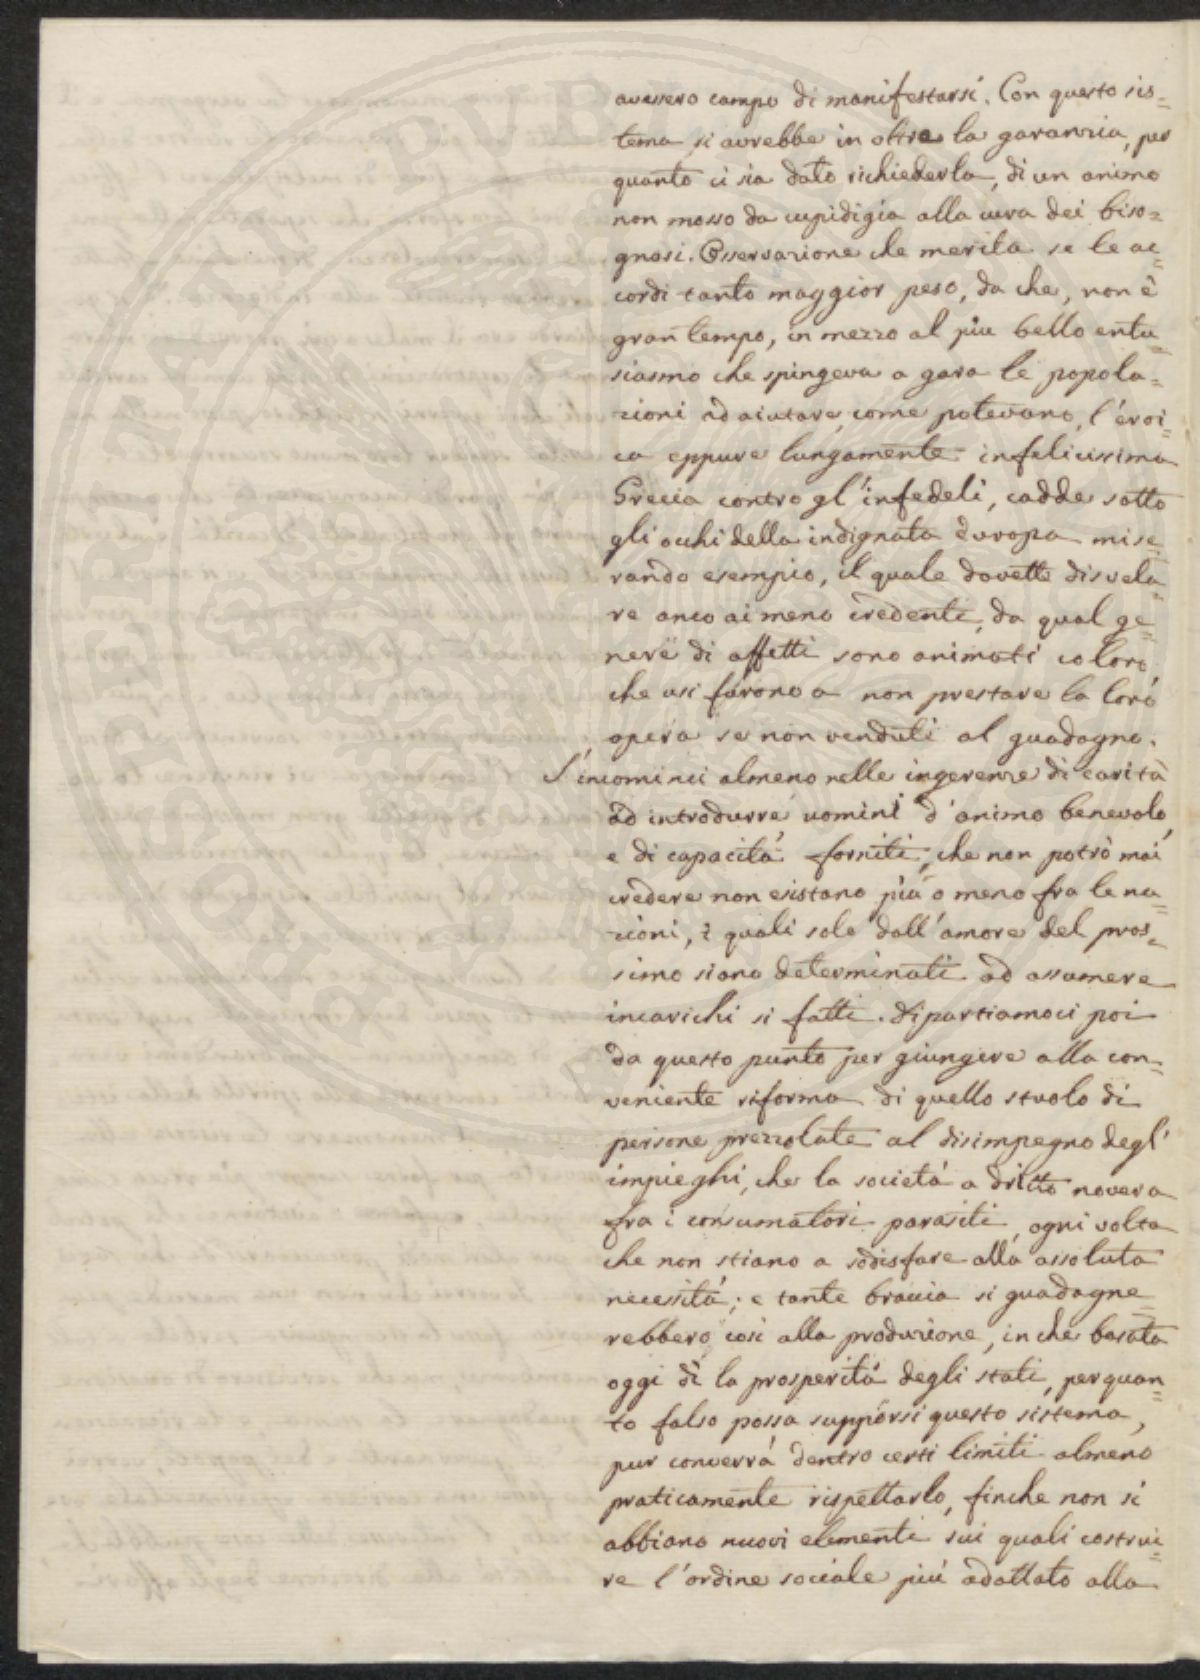 avessero campo di manifestarsi. Con questo sis=
tema si avrebbe in oltre la garanzia, per
quanto ci sia dato richiederla, di un animo
non mosso da cupidigia alla cura dei biso=
gnosi. Osservazione che merita se le ac=
cordi tanto maggior peso, da che, non è
gran tempo, in mezzo al più bello entu=
siasmo che spingeva a gara le popola=
zioni ad aiutare, come potevano, l'eroi=
ca eppure lungamente infelicissima
Grecia contro gl'infedeli, cadde sotto
gli occhi della indignata Europa mise=
rando esempio, il quale dovette disvela=
re anco ai meno credenti, da qual ge=
nere di affetti sono animati coloro
che usi furono a non prestare la loro
opera se non venduti al guadagno.
S'incominci almeno nelle ingerenze di carità
ad introdurre uomini d'animo benevolo,
e di capacità forniti, che non potrò mai
credere non esistano più o meno fra le na=
zioni, i quali solo dall'amore del pros=
simo siano determinati ad assumere
incarichi si fatti. Dipartiamoci poi
da questo punto per giungere alla con=
veniente riforma di quello stuolo di
persone prezzolate al disimpegno degl'
impieghi, che la società a dritto novera
fra i consumatori parasiti, ogni volta
che non stiano a sodisfare alla assoluta
necessità; e tante braccia si guadagne=
rebbero così alla produzione, in che basata
oggi dì la prosperità degli stati, per quan=
to falso possa supporsi questo sistema,
pur converrà dentro certi limiti almeno
praticamente rispettarlo, finche non si
abbiano nuovi elementi sui quali costrui=
re l'ordine sociale più adattato alla